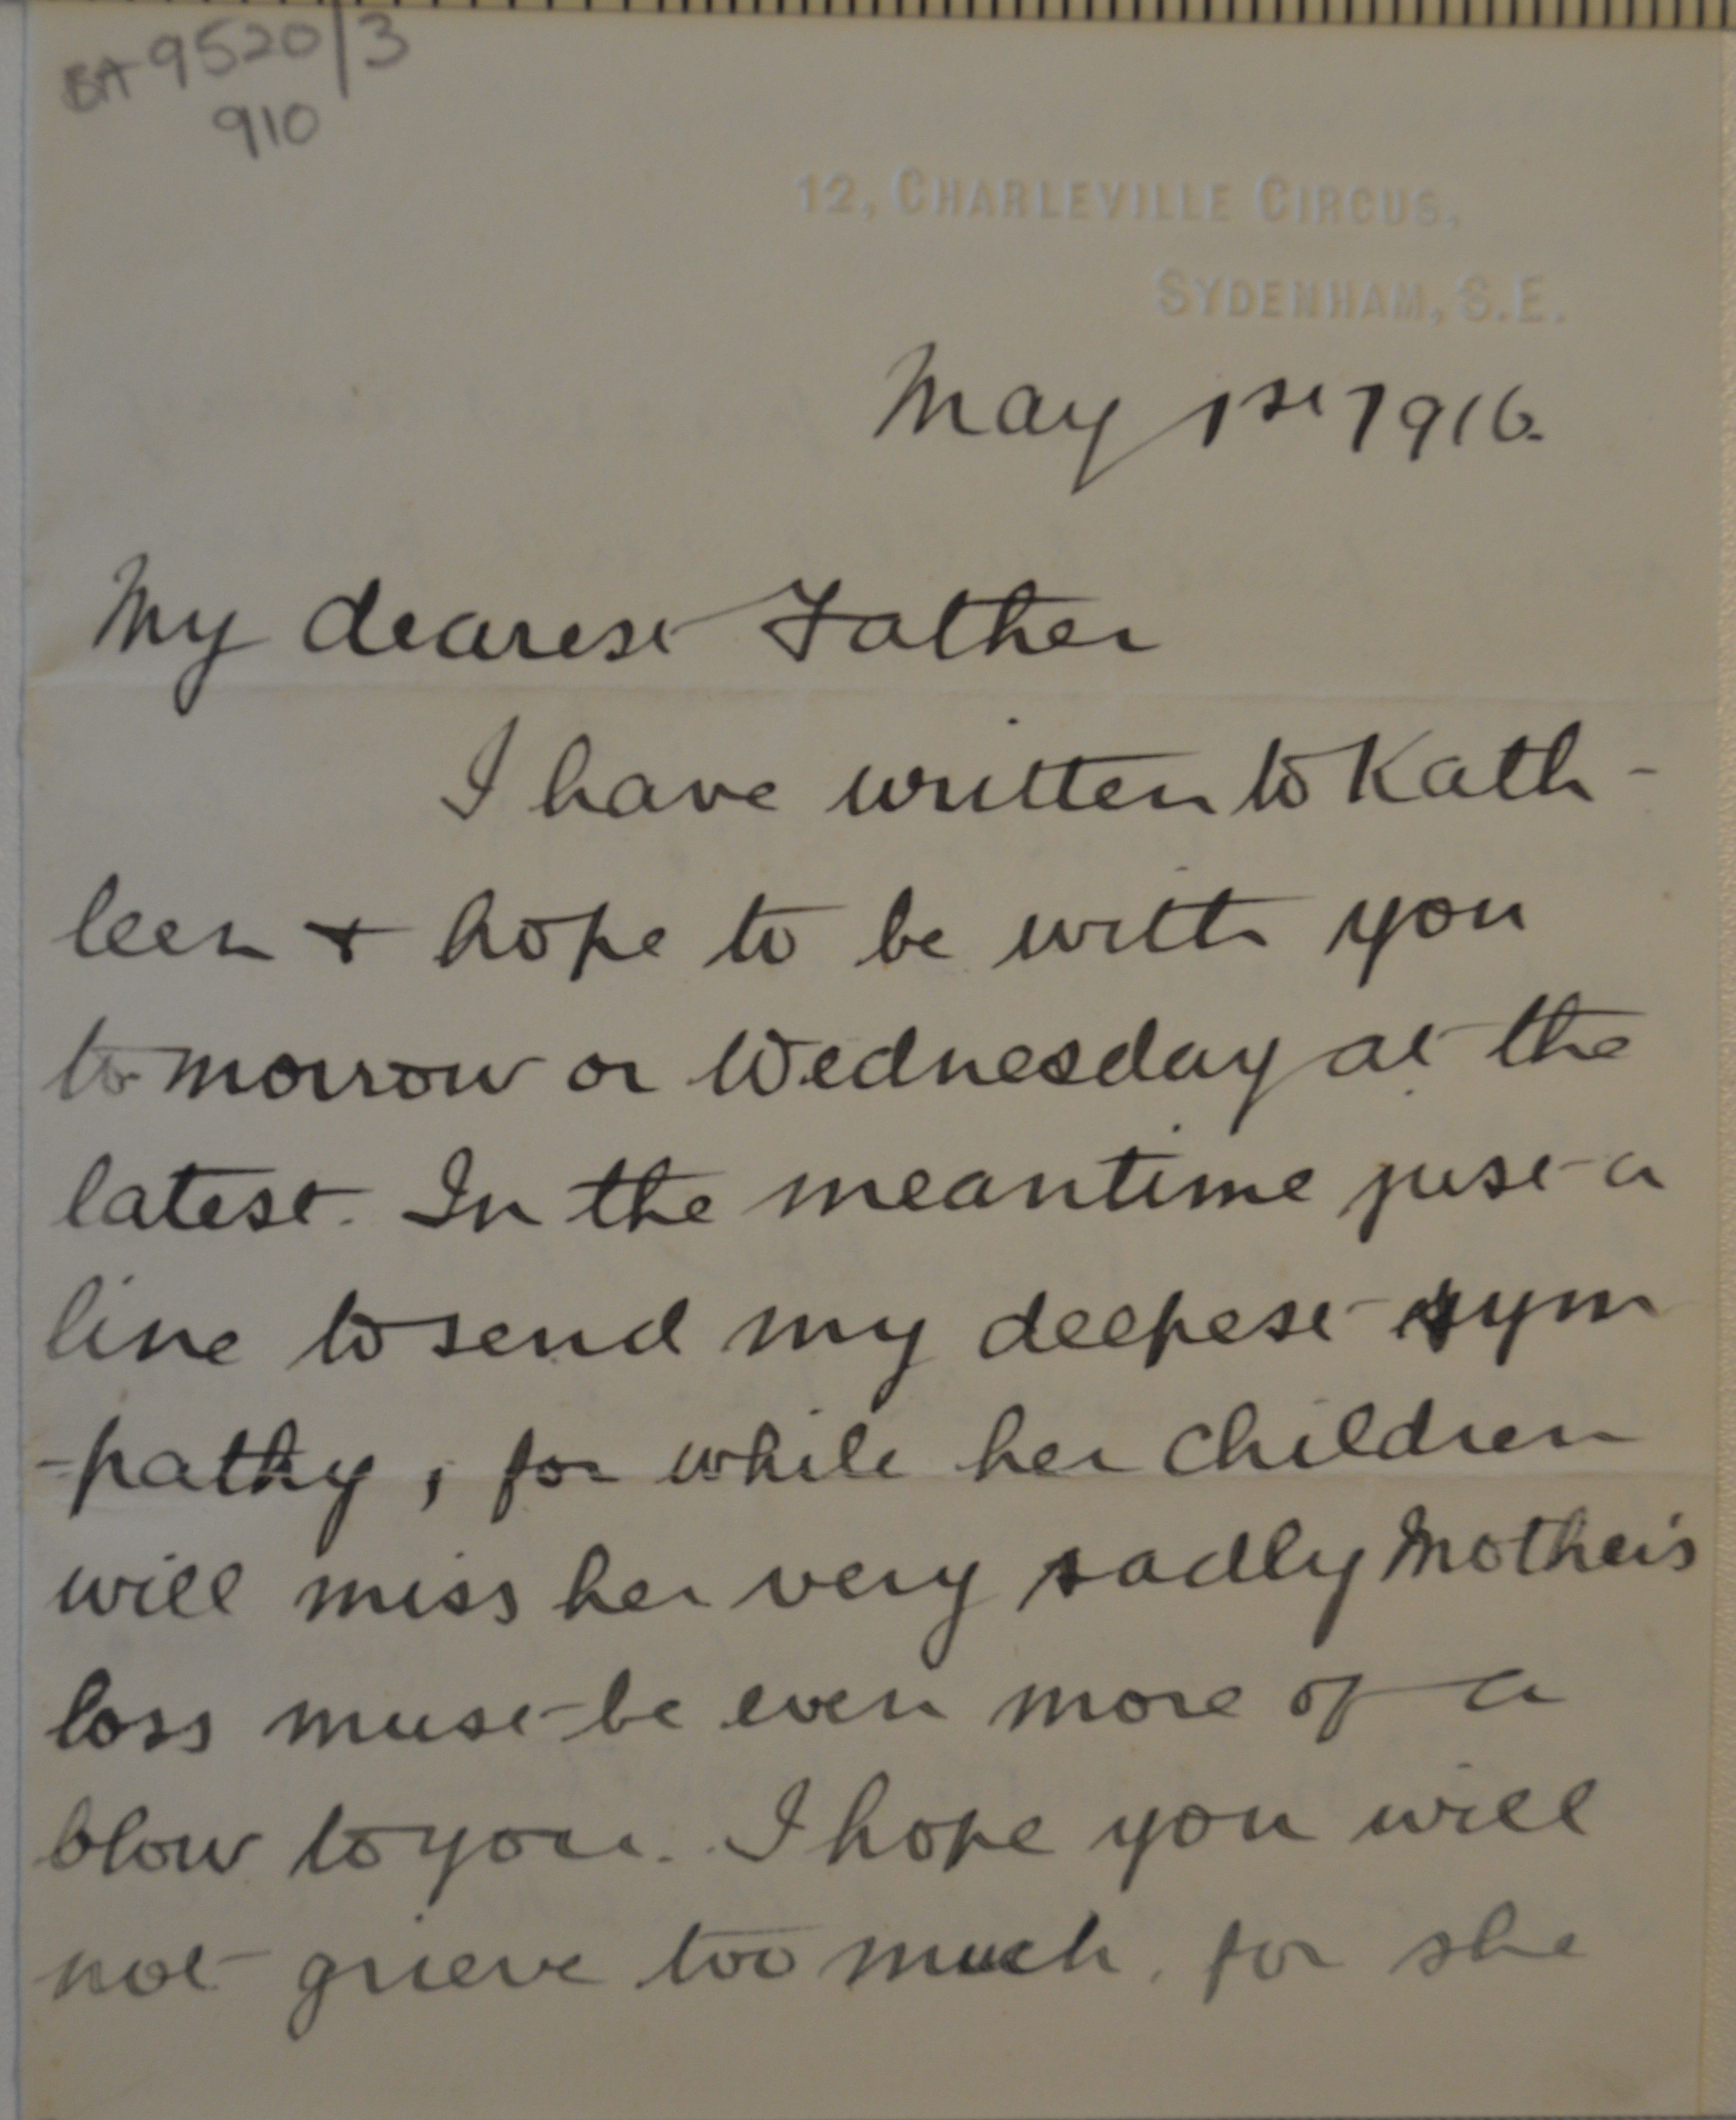 BA 9520/3
910
12, CHARLEVILLE CIRCUS,
SYDENHAM, S.E.
May 1st 1916.
My dearest Father
I have written to Kath-
leen + hope to be with you
tomorrow or Wednesday at the
latest. In the meantime just a
line to send my deepest sym
-pathy, for while her children
will miss her very sadly Mother's
loss must be even more of a
blow to you. I hope you will
not grieve too much, for she